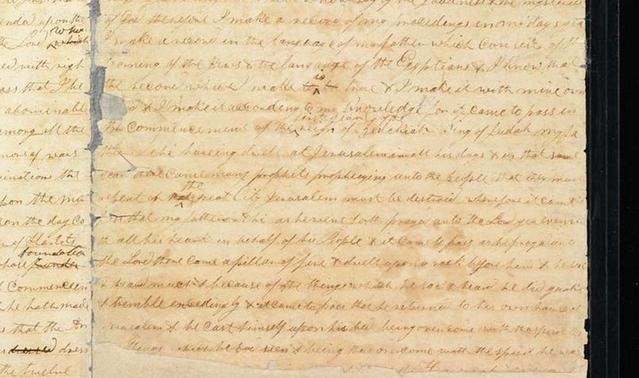 ended upon the
who
the Lord which
ed with righ
as that The
abominable
among all the
inations that
upon the
on the day
foundation
founder
Commencem
he hath made
s that the
dress
the twelve
of God therefore I make a record of my proceedings in my days yea
I make a record in the language of my father which consists of the
learning of the Jews & the language of the Egyptians & I know that
is
the record which I make to be true & I make it with mine own
hand & I make it according to my Knowledge for it came to pass in
first year of the
the Commencement of the reign of Zedekiah King of Judah my fa
ther Lehi haveing dwelt at Jerusalem in all his days & in that same
year there came many prophets prophesying unto the People that they must
the
repent or great City Jerusalem must be destroid wherefore it came to
pass that my father Lehi as he went forth prayed unto the Lord yea even
with all his heart in behalf of his People & it came to pass as he prayed unto
the Lord there came a pillar of fire & dwelt upon a rock before him & he saw
& heard much & because of the things which he saw & heard he did quake
& tremble exceedingly & it came to pass that he returned to his own house at
Jerusalem & he cast himself upon his bed being overcome with the spirit &
things which he had seen & being thus overcome with the spirit he was